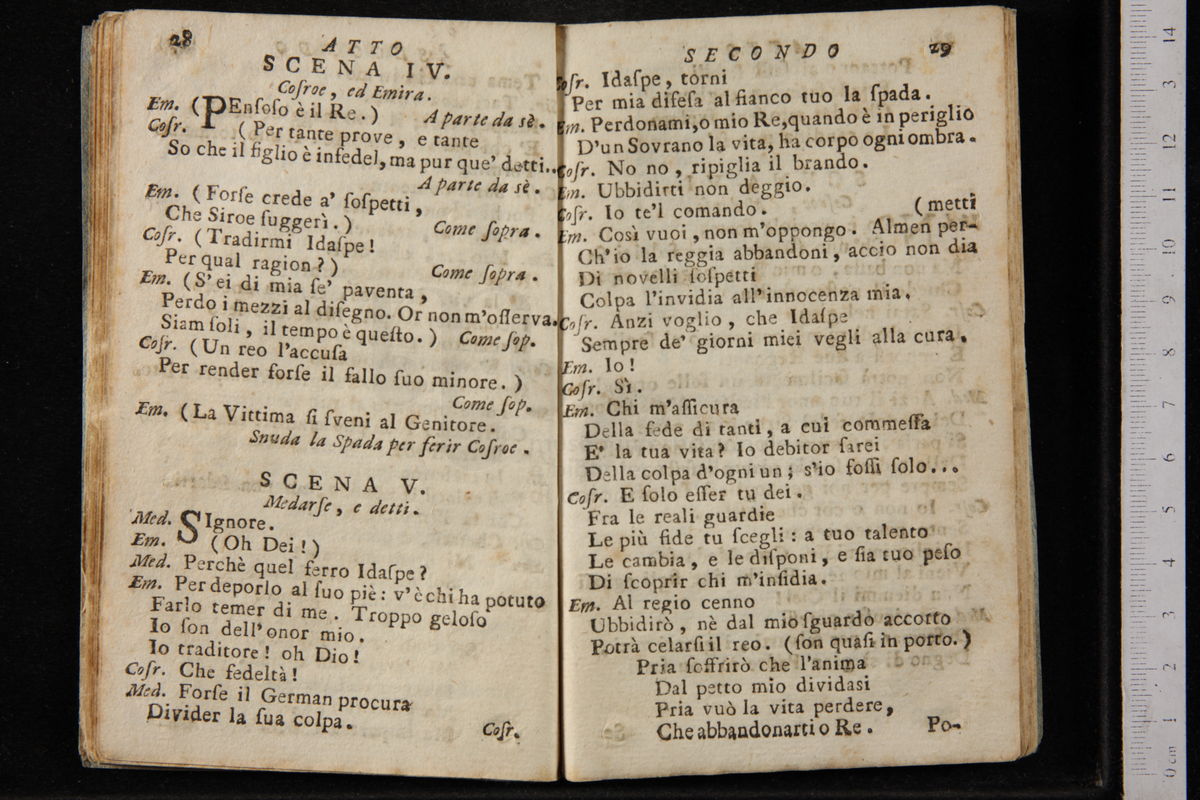 28
ATTO
SCENA IV.
Coſroe, ed Emira.
Em. (PEnſoſo è il Re.) A parte da sè.
Coſr. (Per tante prove, e tante
So che il figlio è infedel, ma pur que' detti..
A parte da sè.
Em. (Forſe crede a' ſoſpetti,
Che Siroe ſuggerì.) Come ſopra.
Coſr. (Tradirmi Idaſpe!
Per qual ragion?) Come ſopra.
Em. (S'ei di mia fe' paventa,
Perdo i mezzi al diſegno. Or non m'oſſerva.
Siam ſoli, il tempo è queſto.) Come ſop.
Coſr. (Un reo l'accuſa
Per render forſe il fallo ſuo minore.)
Come ſop.
Em. (La Vittima ſi ſveni al Genitore.
Snuda la Spada per ferir Coſroe.
SCENA V.
Medarſe, e detti.
Med. SIgnore.
Em. (Oh Dei!)
Med. Perchè quel ferro Idaſpe?
Em. Per deporlo al ſuo piè: v'è chi ha potuto
Farlo temer di me. Troppo geloſo
Io ſon dell'onor mio.
Io traditore! oh Dio!
Coſr. Che fedeltà!
Med. Forſe il German procura
Divider la ſua colpa.
Coſr.
SECONDO
29
Coſr. Idaſpe, torni
Per mia difeſa al fianco tuo la ſpada.
Em. Perdonami, o mio Re, quando è in periglio
D'un Sovrano la vita, ha corpo ogni ombra.
Coſr. No no, ripiglia il brando.
Em. Ubbidirti non deggio.
Coſr. Io te'l comando. (metti
Em. Così vuoi, non m'oppongo. Almen per-
Ch'io la reggia abbandoni, accio non dia
Di novelli ſoſpetti
Colpa l'invidia all'innocenza mia.
Coſr. Anzi voglio, che Idaſpe
Sempre de' giorni miei vegli alla cura.
Em. Io!
Coſr. Sì.
Em. Chi m'aſſicura
Della fede di tanti, a cui commeſſa
E' la tua vita? Io debitor ſarei
Della colpa d'ogni un; s'io foſſi ſolo...
Coſr. E ſolo eſſer tu dei.
Fra le reali guardie
Le più fide tu ſcegli: a tuo talento
Le cambia, e le diſponi, e ſia tuo peſo
Di ſcoprir chi m'inſidia.
Em. Al regio cenno
Ubbidirò, nè dal mio ſguardo accorto
Potrà celarſi il reo. (ſon quaſi in porto.)
Pria ſoffrirò che l'anima
Dal petto mio dividasi
Pria vuò la vita perdere,
Che abbandonarti o Re.
Po-
14
13
12
11
10
9
8
7
6
5
4
3
2
1
0 cm